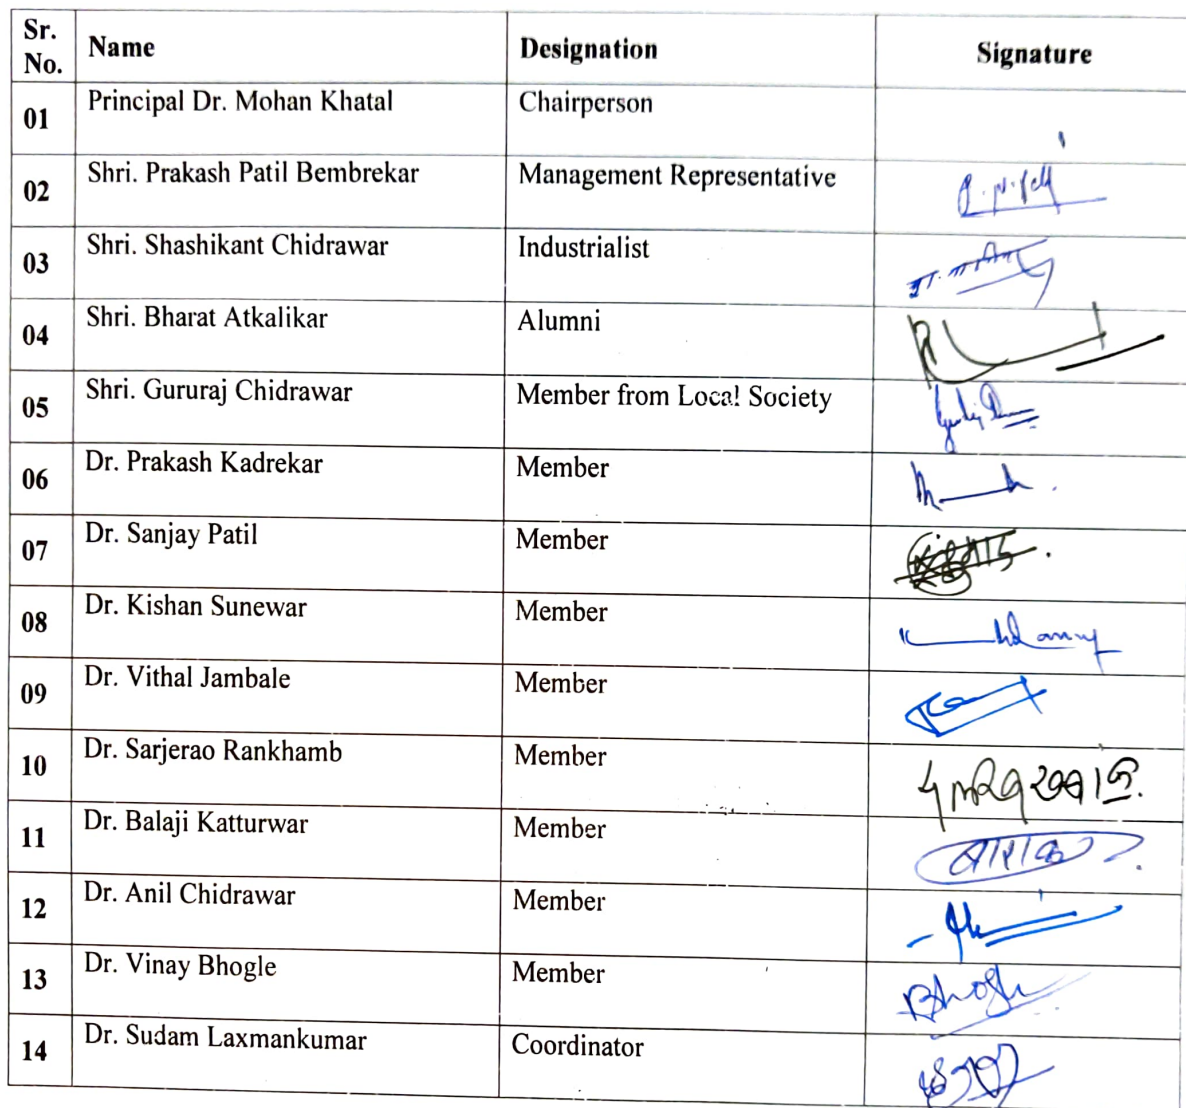 Sr. No. Name Designation Signature
01 Principal Dr. Mohan Khatal Chairperson
02 Shri. Prakash Patil Bembrekar Management Representative
03 Shri. Shashikant Chidrawar Industrialist
04 Shri. Bharat Atkalikar Alumni
05 Shri. Gururaj Chidrawar Member from Local Society
06 Dr. Prakash Kadrekar Member
07 Dr. Sanjay Patil Member
08 Dr. Kishan Sunewar Member
09 Dr. Vithal Jambale Member
10 Dr. Sarjerao Rankhamb Member
11 Dr. Balaji Katturwar Member
12 Dr. Anil Chidrawar Member
13 Dr. Vinay Bhogle Member Bhogle
14 Dr. Sudam Laxmankumar Coordinator